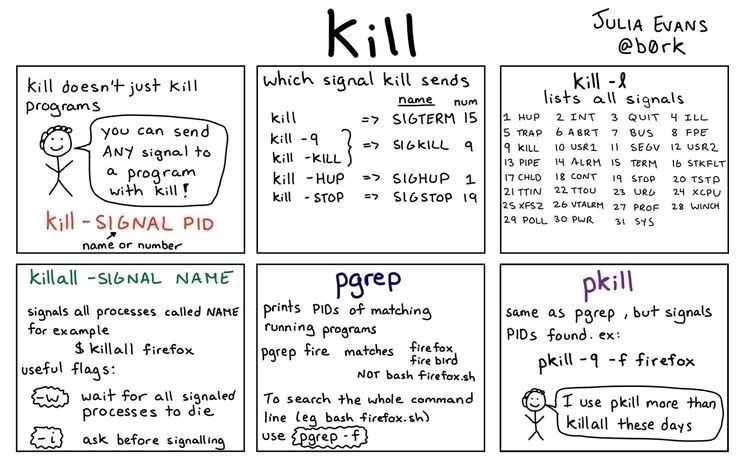 kill
JULIA EVANS
@b0rk
kill doesn't just kill
programs
you can send
ANY signal to
a program
with kill!
kill -SIGNAL PID
name or number
which signal kill sends
name num
kill => SIGTERM 15
kill -9
kill -KILL } => SIGKILL 9
kill -HUP => SIGHUP 1
kill -STOP => SIGSTOP 19
kill -l
lists all signals
1 HUP 2 INT 3 QUIT 4 ILL
5 TRAP 6 ABRT 7 BUS 8 FPE
9 KILL 10 USR1 11 SEGV 12 USR2
13 PIPE 14 ALRM 15 TERM 16 STKFLT
17 CHLD 18 CONT 19 STOP 20 TSTP
21 TTIN 22 TTOU 23 URG 24 XCPU
25 XFSZ 26 VTALRM 27 PROF 28 WINCH
29 POLL 30 PWR 31 SYS
killall -SIGNAL NAME
signals all processes called NAME
for example
$ killall firefox
useful flags:
-w wait for all signaled
processes to die
-i ask before signalling
pgrep
prints PIDs of matching
running programs
pgrep fire matches firefox
firebird
NOT bash firefox.sh
To search the whole command
line (eg bash firefox.sh)
use pgrep -f
pkill
same as pgrep, but signals
PIDs found. ex:
pkill -9 -f firefox
I use pkill more than
killall these days